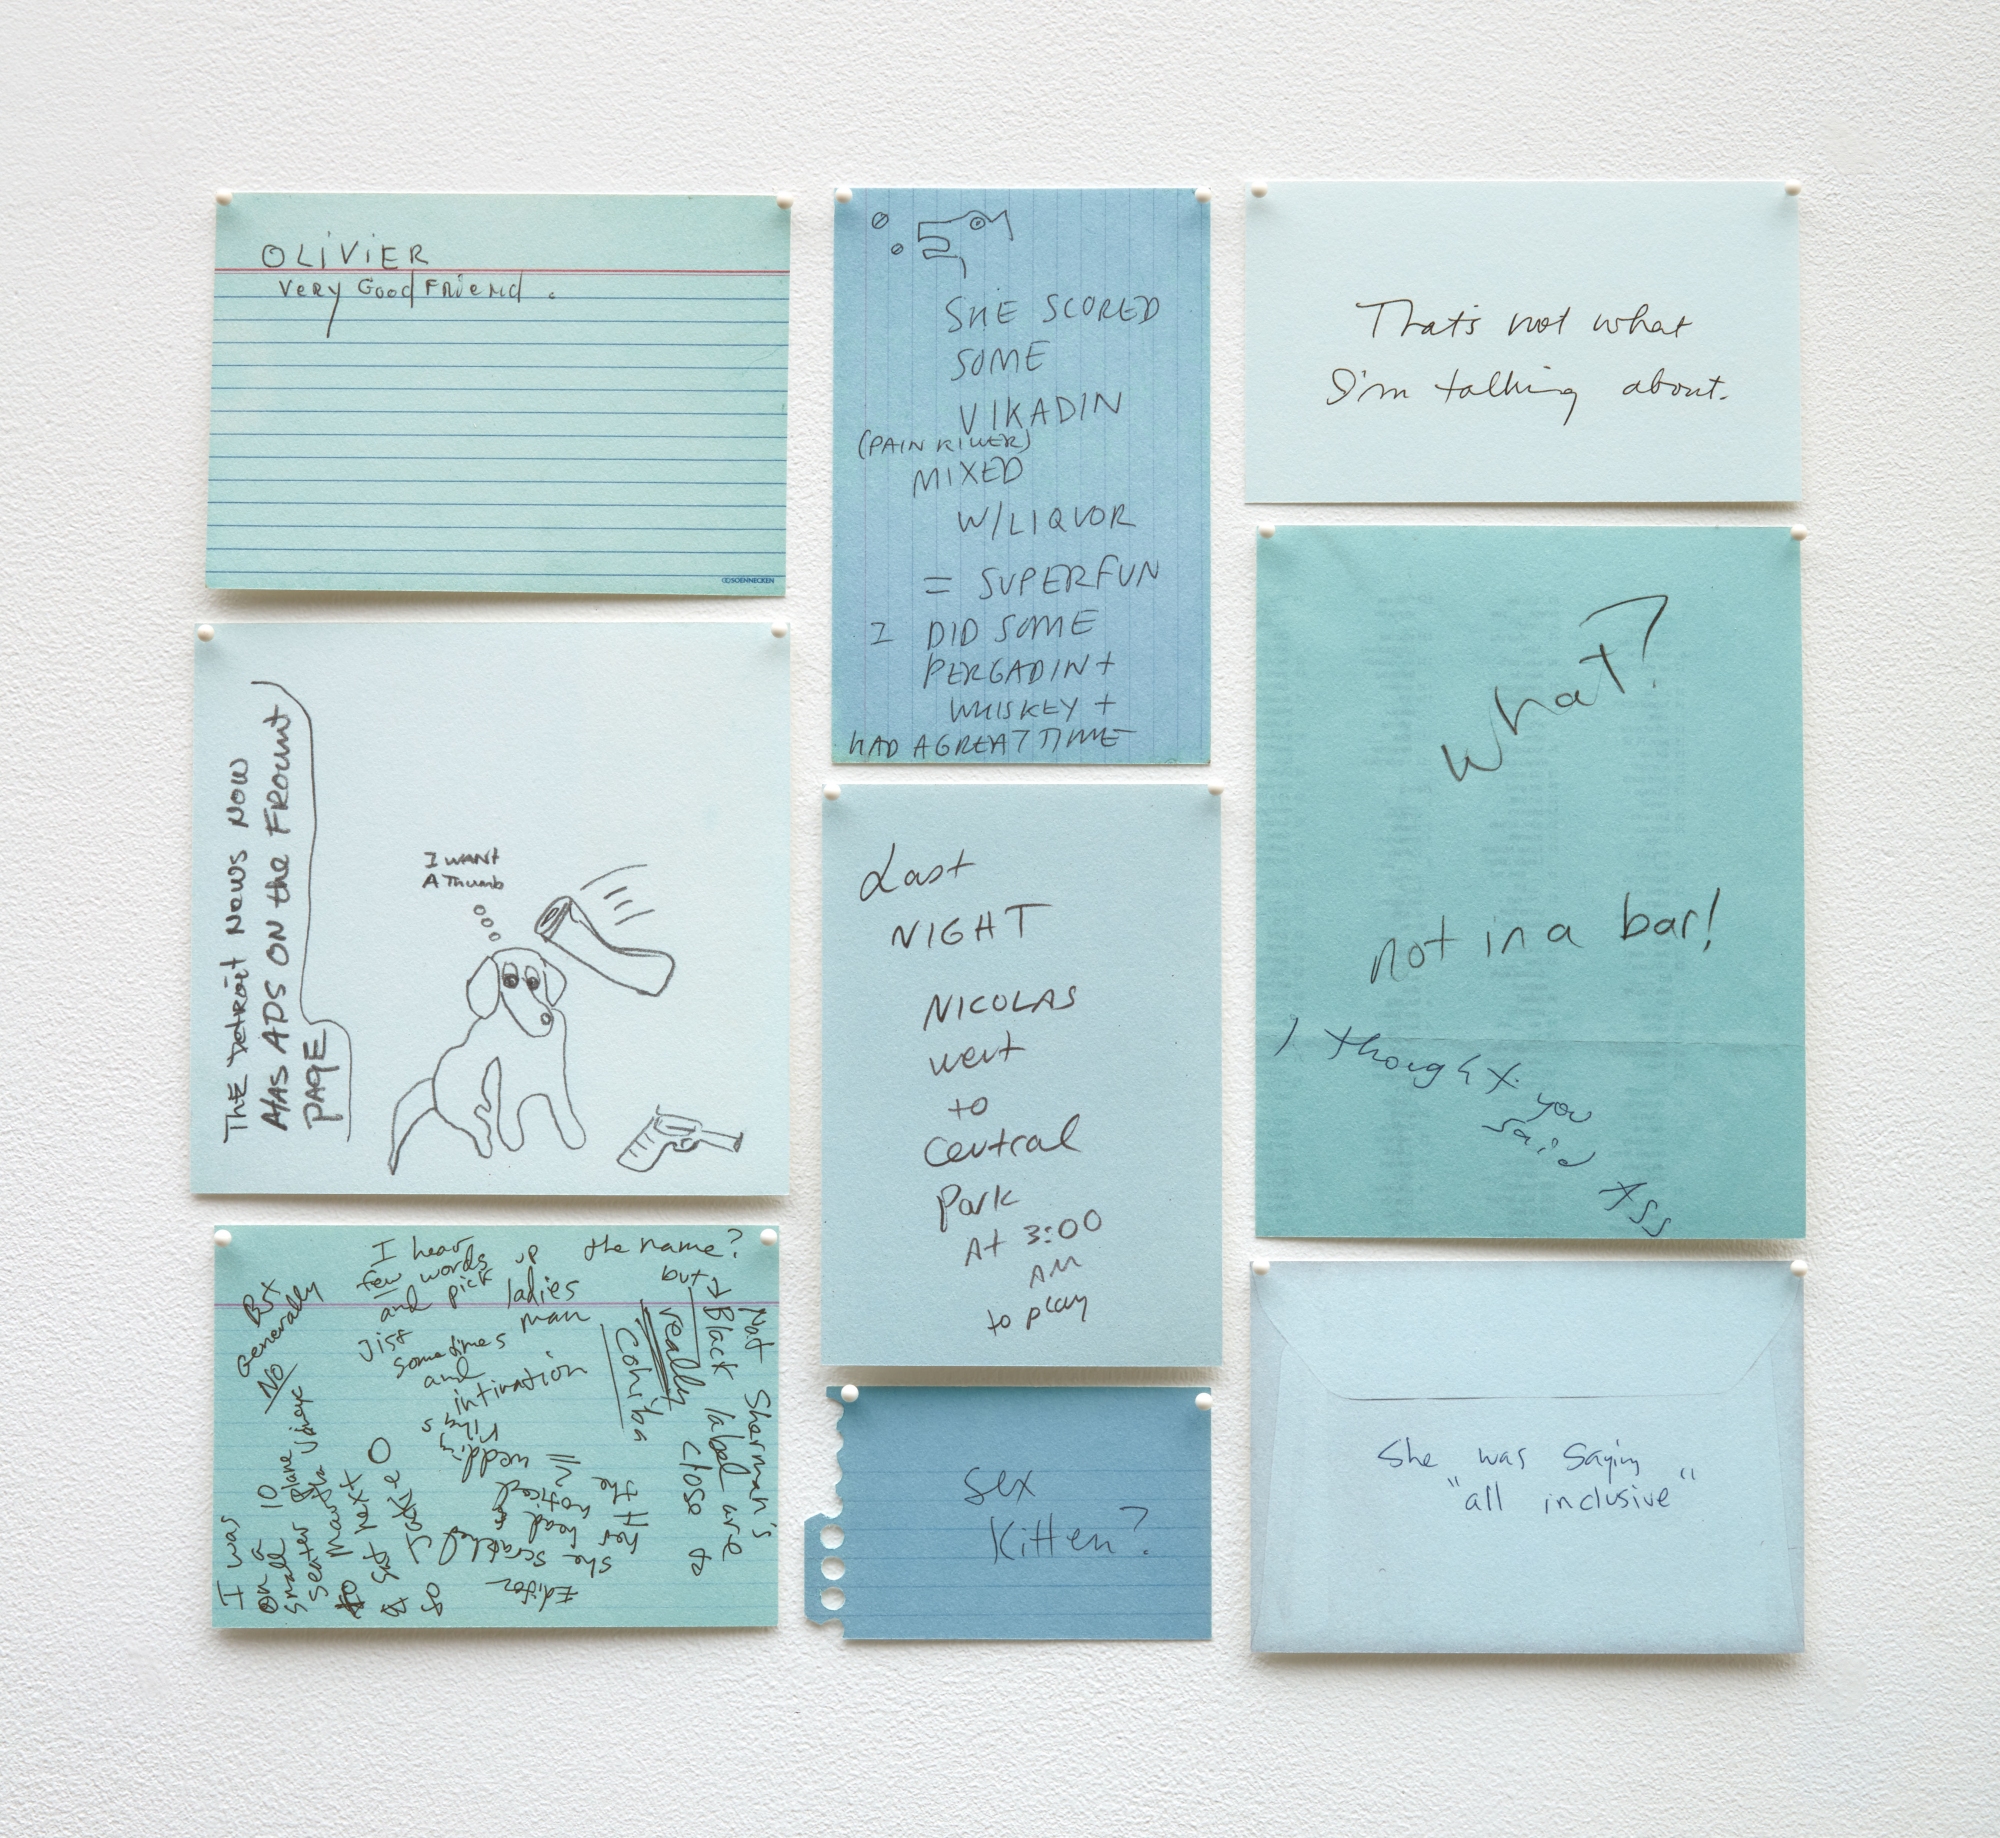 OLIVIER
VERY Good FRiENd.
SOENNECKEN
SHE SCORED
SOME
VIKADIN
(PAIN KILLER)
MIXED
W/LIQUOR
= SUPERFUN
I DID SOME
PERGADIN +
WHISKEY +
HAD A GREAT TIME
Thats not what
I'm talking about.
THE Detroit News NOW
HAS ADS ON the FROUNT
PAGE
I WANT
A Thumb
Last
NIGHT
NICOLAS
went
to
Central
Park
At 3:00
AM
to play
what?
not in a bar!
I thought you
said ASS
I hear
few words
and pick up
ladies
man
sometimes
and
intimation
the name?
but
Not Sherman's
Black label are
really close to
Cohiba
But
Generally
NO
I was
on a
small 10
seater plane
to Martha
sat next
to Jackie O
so
Editor
she scratched
her head
the noticed
wedding
sex
Kitten?
She was saying
"all inclusive"